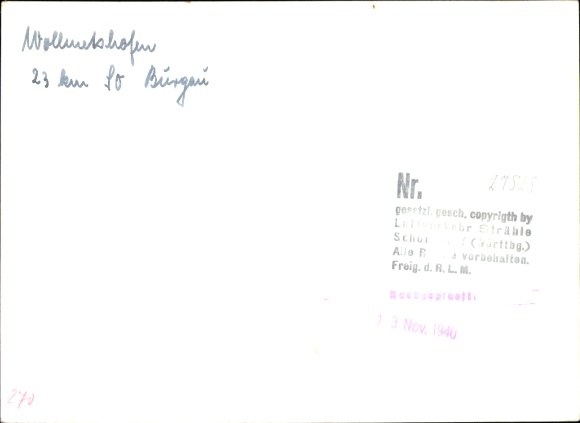 Wollmetshofen
23 km SO Burgau
Nr. 
gesetzl. gesch. copyrigth by
Luftverkehr Strähle
Schorndorf (Württbg.)
Alle R vorbehalten.
Freig. d. R. L. M.
13 Nov. 1940
270